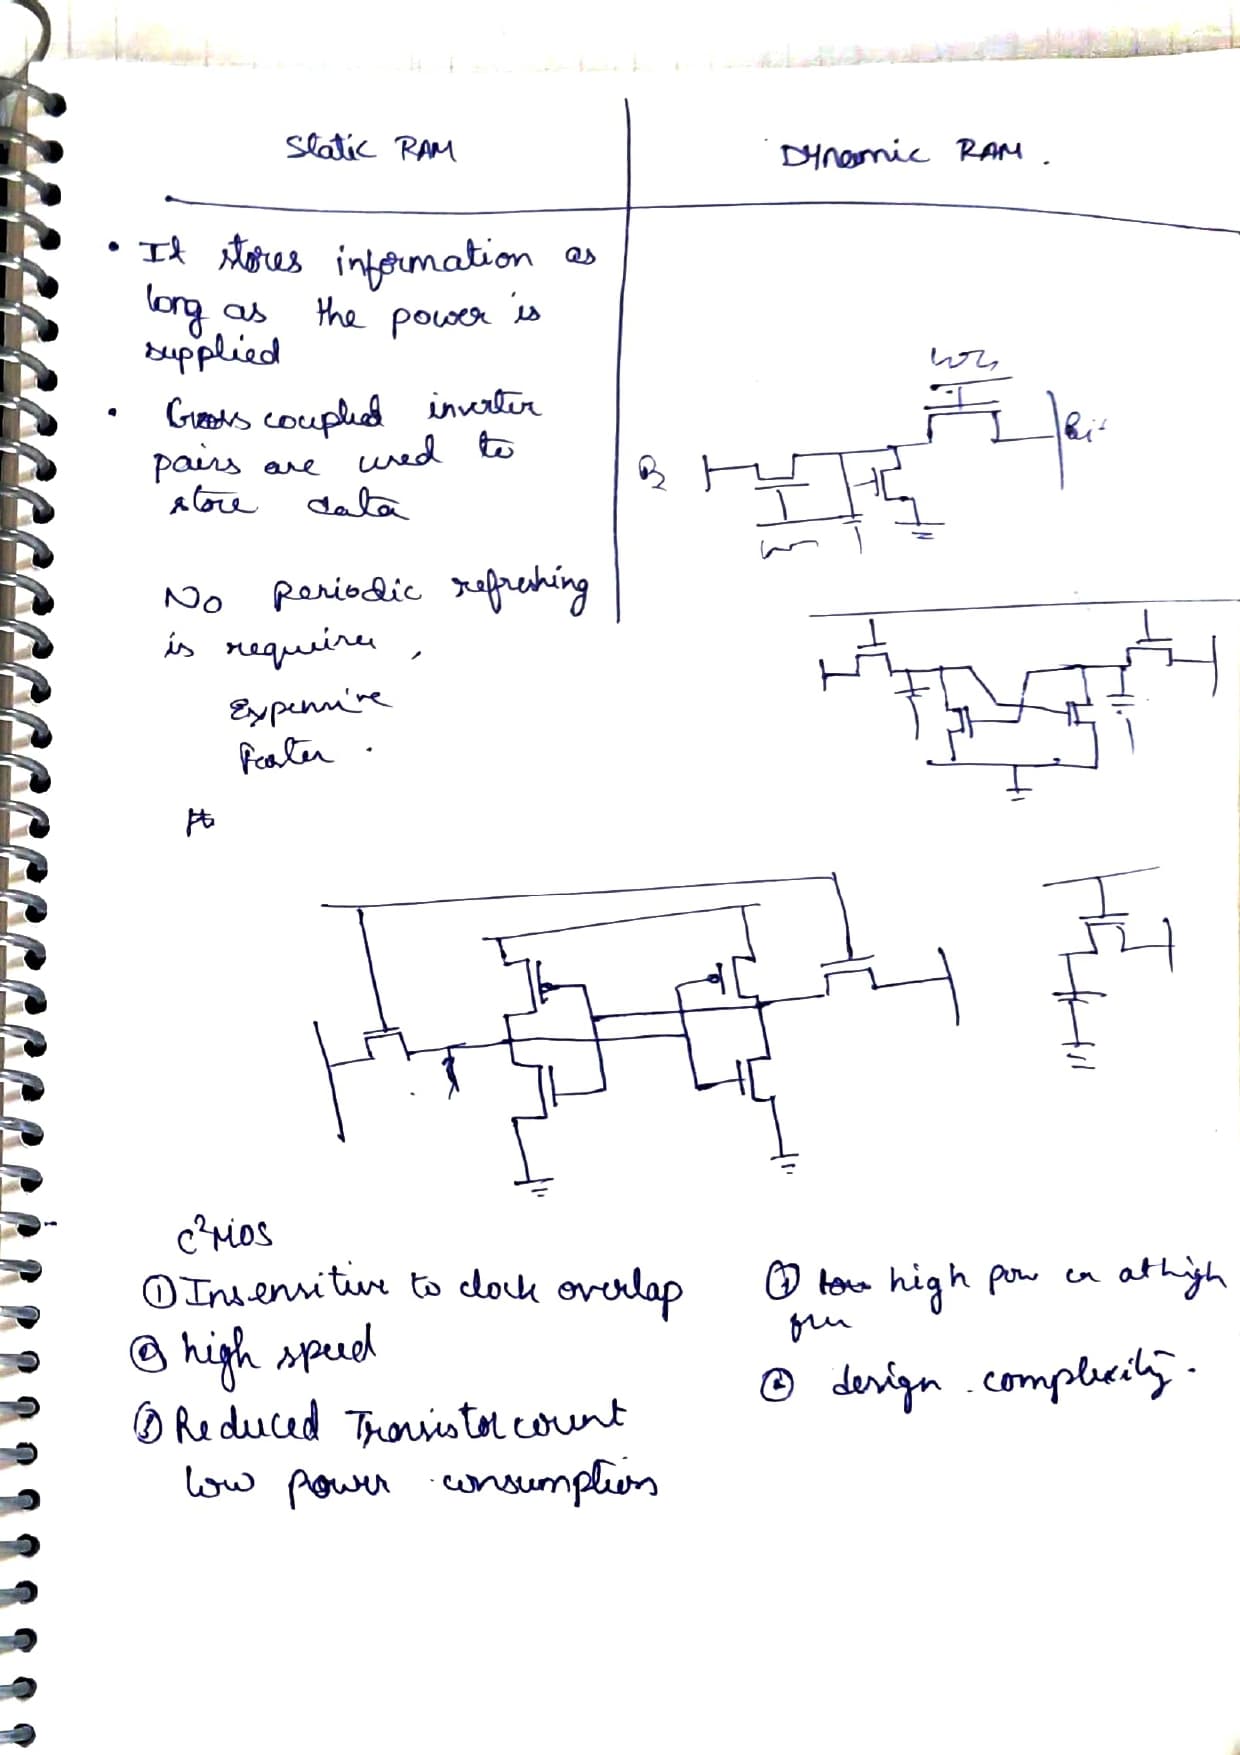 Static RAM
Dynamic RAM.
• It stores information as
long as the power is
supplied
• Cross coupled inverter
pairs are used to
store data
No periodic refreshing
is require,
Expensive
Faster.
C²MOS
① Insensitive to clock overlap
② high speed
③ Reduced Transistor count
low power consumption
① high pow at high
② design complexity.